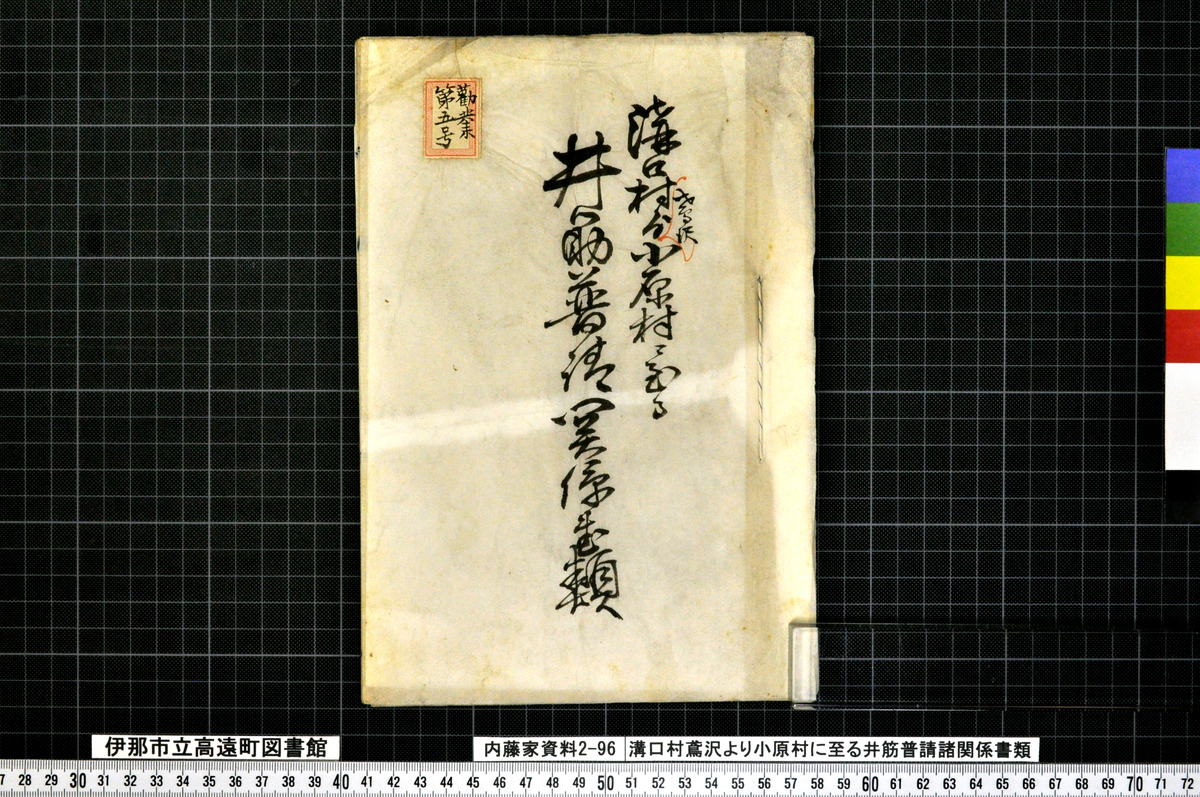 勸業
第五号
溝口村ゟ小原村ニ至る
鳶沢
井筋普請関係書類
伊那市立高遠町図書館
内藤家資料2-96
溝口村鳶沢より小原村に至る井筋普請諸関係書類
7 28 29 30 31 32 33 34 35 36 37 38 39 40 41 42 43 44 45 46 47 48 49 50 51 52 53 54 55 56 57 58 59 60 61 62 63 64 65 66 67 68 69 70 71 72